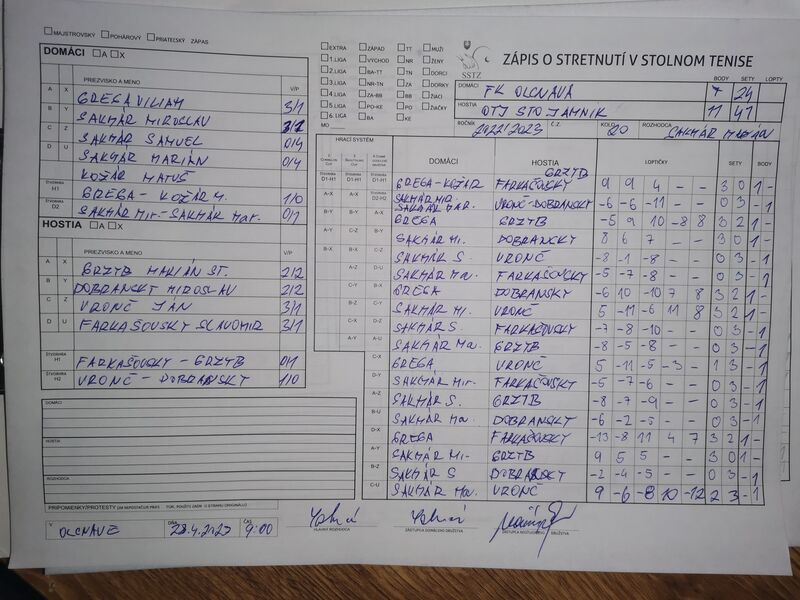 MAJSTROVSKÝ POHÁROVÝ PRIATEĽSKÝ ZÁPAS
DOMÁCI A X
PRIEZVISKO A MENO V/P
A X GREGA VILIAM 3/1
B Y SAKMÁR MIROSLAV 3/1
C Z SAKMÁR SAMUEL 0/4
D U SAKMÁR MARIÁN 0/4
KOŽÁR MATÚŠ
ŠTVORHRA H1 GREGA - KOŽÁR M. 1/0
ŠTVORHRA D2 SAKMÁR Mir.-SAKMÁR Mar. 0/1
HOSTIA A X
PRIEZVISKO A MENO V/P
A X GRZYB MARIÁN ST. 2/2
B Y DOBRANSKÝ MIROSLAV 2/2
C Z VRONČ JÁN 3/1
D U FARKAŠOVSKÝ SLAVOMIR 3/1
ŠTVORHRA H1 FARKAŠOVSKÝ - GRZYB 0/1
ŠTVORHRA H2 VRONČ - DOBRANSKÝ 1/0
DOMÁCI
HOSTIA
ROZHODCA
PRIPOMIENKY/PROTESTY
V OLCNAVE DŇA 23.4.2023 ČAS 9:00
EXTRA ZÁPAD TT MUŽI
1. LIGA VÝCHOD NR ŽENY
2. LIGA BA-TT TN DORCI
3. LIGA NR-TN ZA DORKY
4. LIGA ZA-BB BB ŽIACI
5. LIGA PO-KE PO ŽIAČKY
6. LIGA BA KE
MO
SSTZ
ZÁPIS O STRETNUTÍ V STOLNOM TENISE
BODY SETY LOPTY
DOMÁCI FK OLCNAVA 7 24
HOSTIA OTJ STOJAMNIK 11 41
ROČNÍK 2022/2023 Č.Z. KOLO 20 ROZHODCA SAKMÁR MARIÁN
HRACÍ SYSTÉM DOMÁCI HOSTIA LOPTIČKY SETY BODY
GRZYB
GREGA-KOŽÁR FARKAŠOVSKÝ 9 9 4 - - 3 0 1 -
SAKMÁR MIR.
SAKMÁR MAR. VRONČ-DOBRANSKÝ -6 -6 -11 - - 0 3 - 1
GREGA GRZYB -5 9 10 -8 8 3 2 1 -
SAKMÁR Mi. DOBRANSKÝ 8 6 7 - - 3 0 1 -
SAKMÁR S. VRONČ -8 -1 -8 - - 0 3 - 1
SAKMÁR Ma. FARKAŠOVSKÝ -5 -7 -8 - - 0 3 - 1
GREGA DOBRANSKÝ -6 10 -10 7 8 3 2 1 -
SAKMÁR Mi. VRONČ 5 -11 -6 11 8 3 2 1 -
SAKMÁR S. FARKAŠOVSKÝ -7 -8 -10 - - 0 3 - 1
SAKMÁR Ma. GRZYB -8 -5 -8 - - 0 3 - 1
GREGA VRONČ 5 -11 -5 -3 - 1 3 - 1
SAKMÁR Mir. FARKAŠOVSKÝ -5 -7 -6 - - 0 3 - 1
SAKMÁR S. GRZYB -8 -7 -9 - - 0 3 - 1
SAKMÁR Ma. DOBRANSKÝ -6 -2 -5 - - 0 3 - 1
GREGA FARKAŠOVSKÝ -13 -8 11 4 7 3 2 1 -
SAKMÁR Mi. GRZYB 9 5 5 - - 3 0 1 -
SAKMÁR S DOBRANSKÝ -2 -4 -5 - - 0 3 - 1
SAKMÁR Ma. VRONČ 9 -6 -8 10 -12 2 3 - 1
HLAVNÝ ROZHODCA ZÁSTUPCA DOMÁCEHO DRUŽSTVA